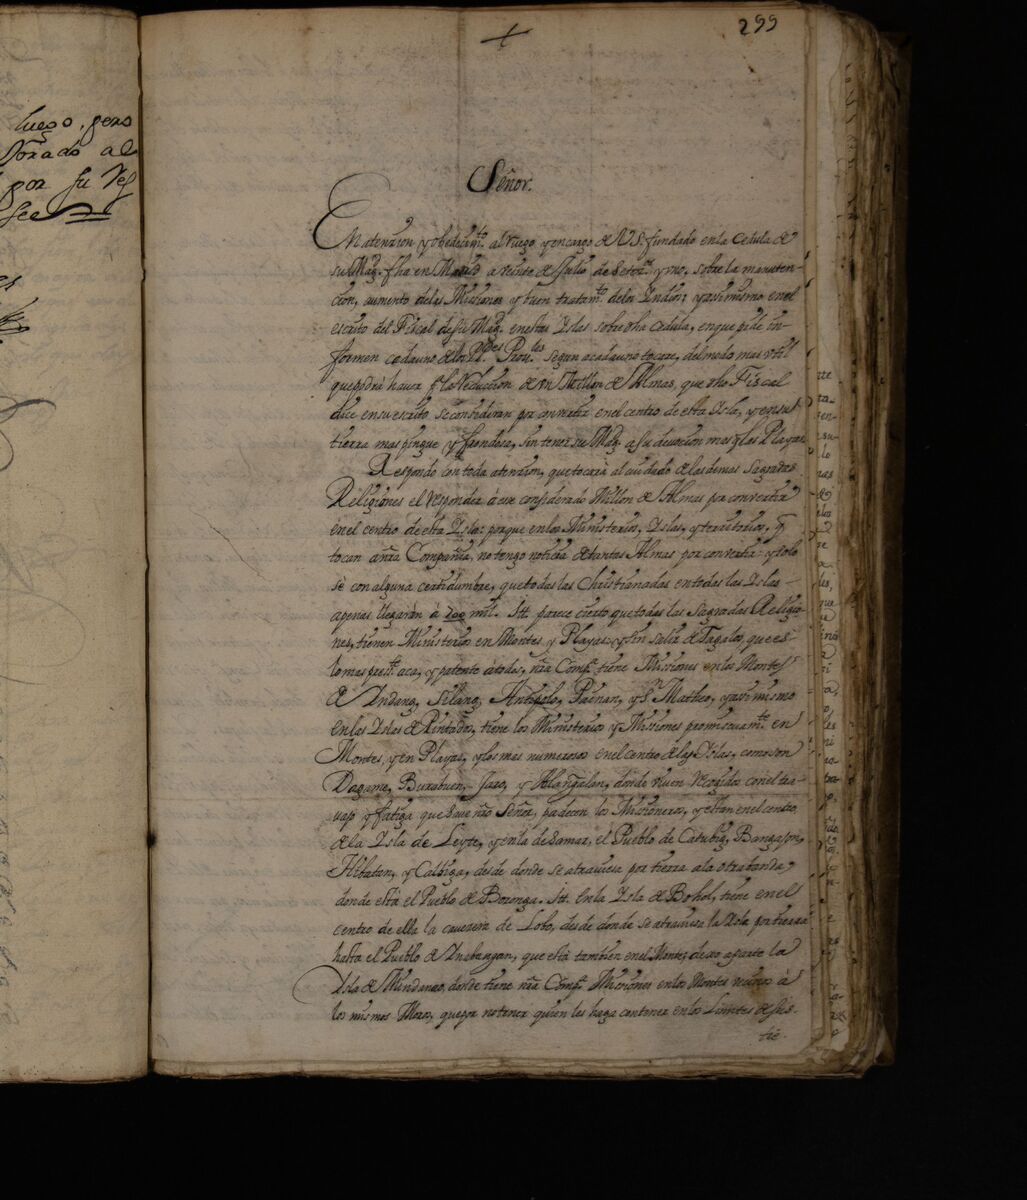 luego, pero
por su
299
Señor.
En atenzion y obedecim.to al ruego y encargo de V.S. fundado en la Cedula de
su Mag. fha en Madrid a veinte de Julio de Setez.s y mo. sobre la manuten-
cion, aumento de las Missiones y buen tratam.to de los Indios; y assimismo en el
escrito del Fiscal de su Mag. en estas Yslas sobre dha cedula, en que pide in-
formen cada uno de los PP.es Prov.les segun a cada uno tocare, del modo mas util
que podra haver p.a la Reduccion de un Millon de Almas, que dho Fiscal
dice en su escrito se consideran por convertir en el centro de esta Ysla, y en su
tierra mas pingue y frondosa, sin tener su Mag. a su devocion mas q las Playas.
Respondo con toda atenzion, que tocarà al cuidado de las demas Sagradas
Religiones el responder à ese considerado Millon de Almas por convertir
en el centro de esta Ysla: porque en los Ministerios, Yslas, y territorios, q
tocan a ñra Compañia, no tengo noticia de tantas Almas por convertir: y solo
sè con alguna certidumbre, que todas las Christianadas en todas las Yslas
apenas llegaràn à 700 mil. Itt. parece cierto que todas las Sagradas Religio-
nes, tienen Ministerios en Montes y Playas: y sin salir de Tagalos, que es
lo mas pres.te aca, y patente à todos, ñra Comp.a tiene Missiones en los Montes
de Yndang, Silang, Antipolo, Paenan, y S.n Matheo, y assimismo
en las Yslas de Pintados, tiene los Ministerios y Missiones promiscuam.te en
Montes, y en Playas, y los mas numerosos en el centro de las Yslas, como son
Dagame, Burabuen, Jaro, y Alangalan, donde viven recogidos con el tra-
vajo y fatiga que save ñro Señor, padecen los Missioneros, y estan en el centro
de la Ysla de Leyte, y en la de Samar, el Pueblo de Catubig, Bangajon,
Hibatan, y Calbiga, desde donde se atraviesa por tierra a la otra banda,
donde està el Pueblo de Boronga. Itt. En la Ysla de Bohol, tiene en el
centro de ella la cavezera de Lobo, desde donde se atraviesa la Ysla por tierra
hasta el Pueblo de Inabangan, que està tambien en el Monte; dexo aparte la
Ysla de Mindanao, donde tiene ñra Comp.a Missiones en los Montes vecinos à
los mismos Moros, que por no tener quien les haga contener en los Limites de su
tie-